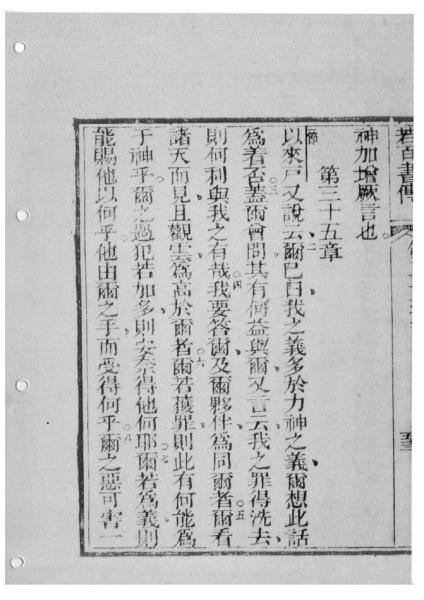 若百書傳
神加增厥言也
第三十五章
節以來戸又說云○二爾已曰我之義多於力神之義爾想此話
為着否○三蓋爾曾問其有何益與爾又言云我之罪得洗去
則何利與我之有哉○四我要答爾及爾夥伴為同爾者○五爾看
諸天而見且觀雲為高於爾者○六爾若獲罪則此有何能為
于神乎爾之過犯若加多則安奈得他何耶○七爾若為義則
能賜他以何乎他由爾之手而受得何乎○八爾之惡可害一